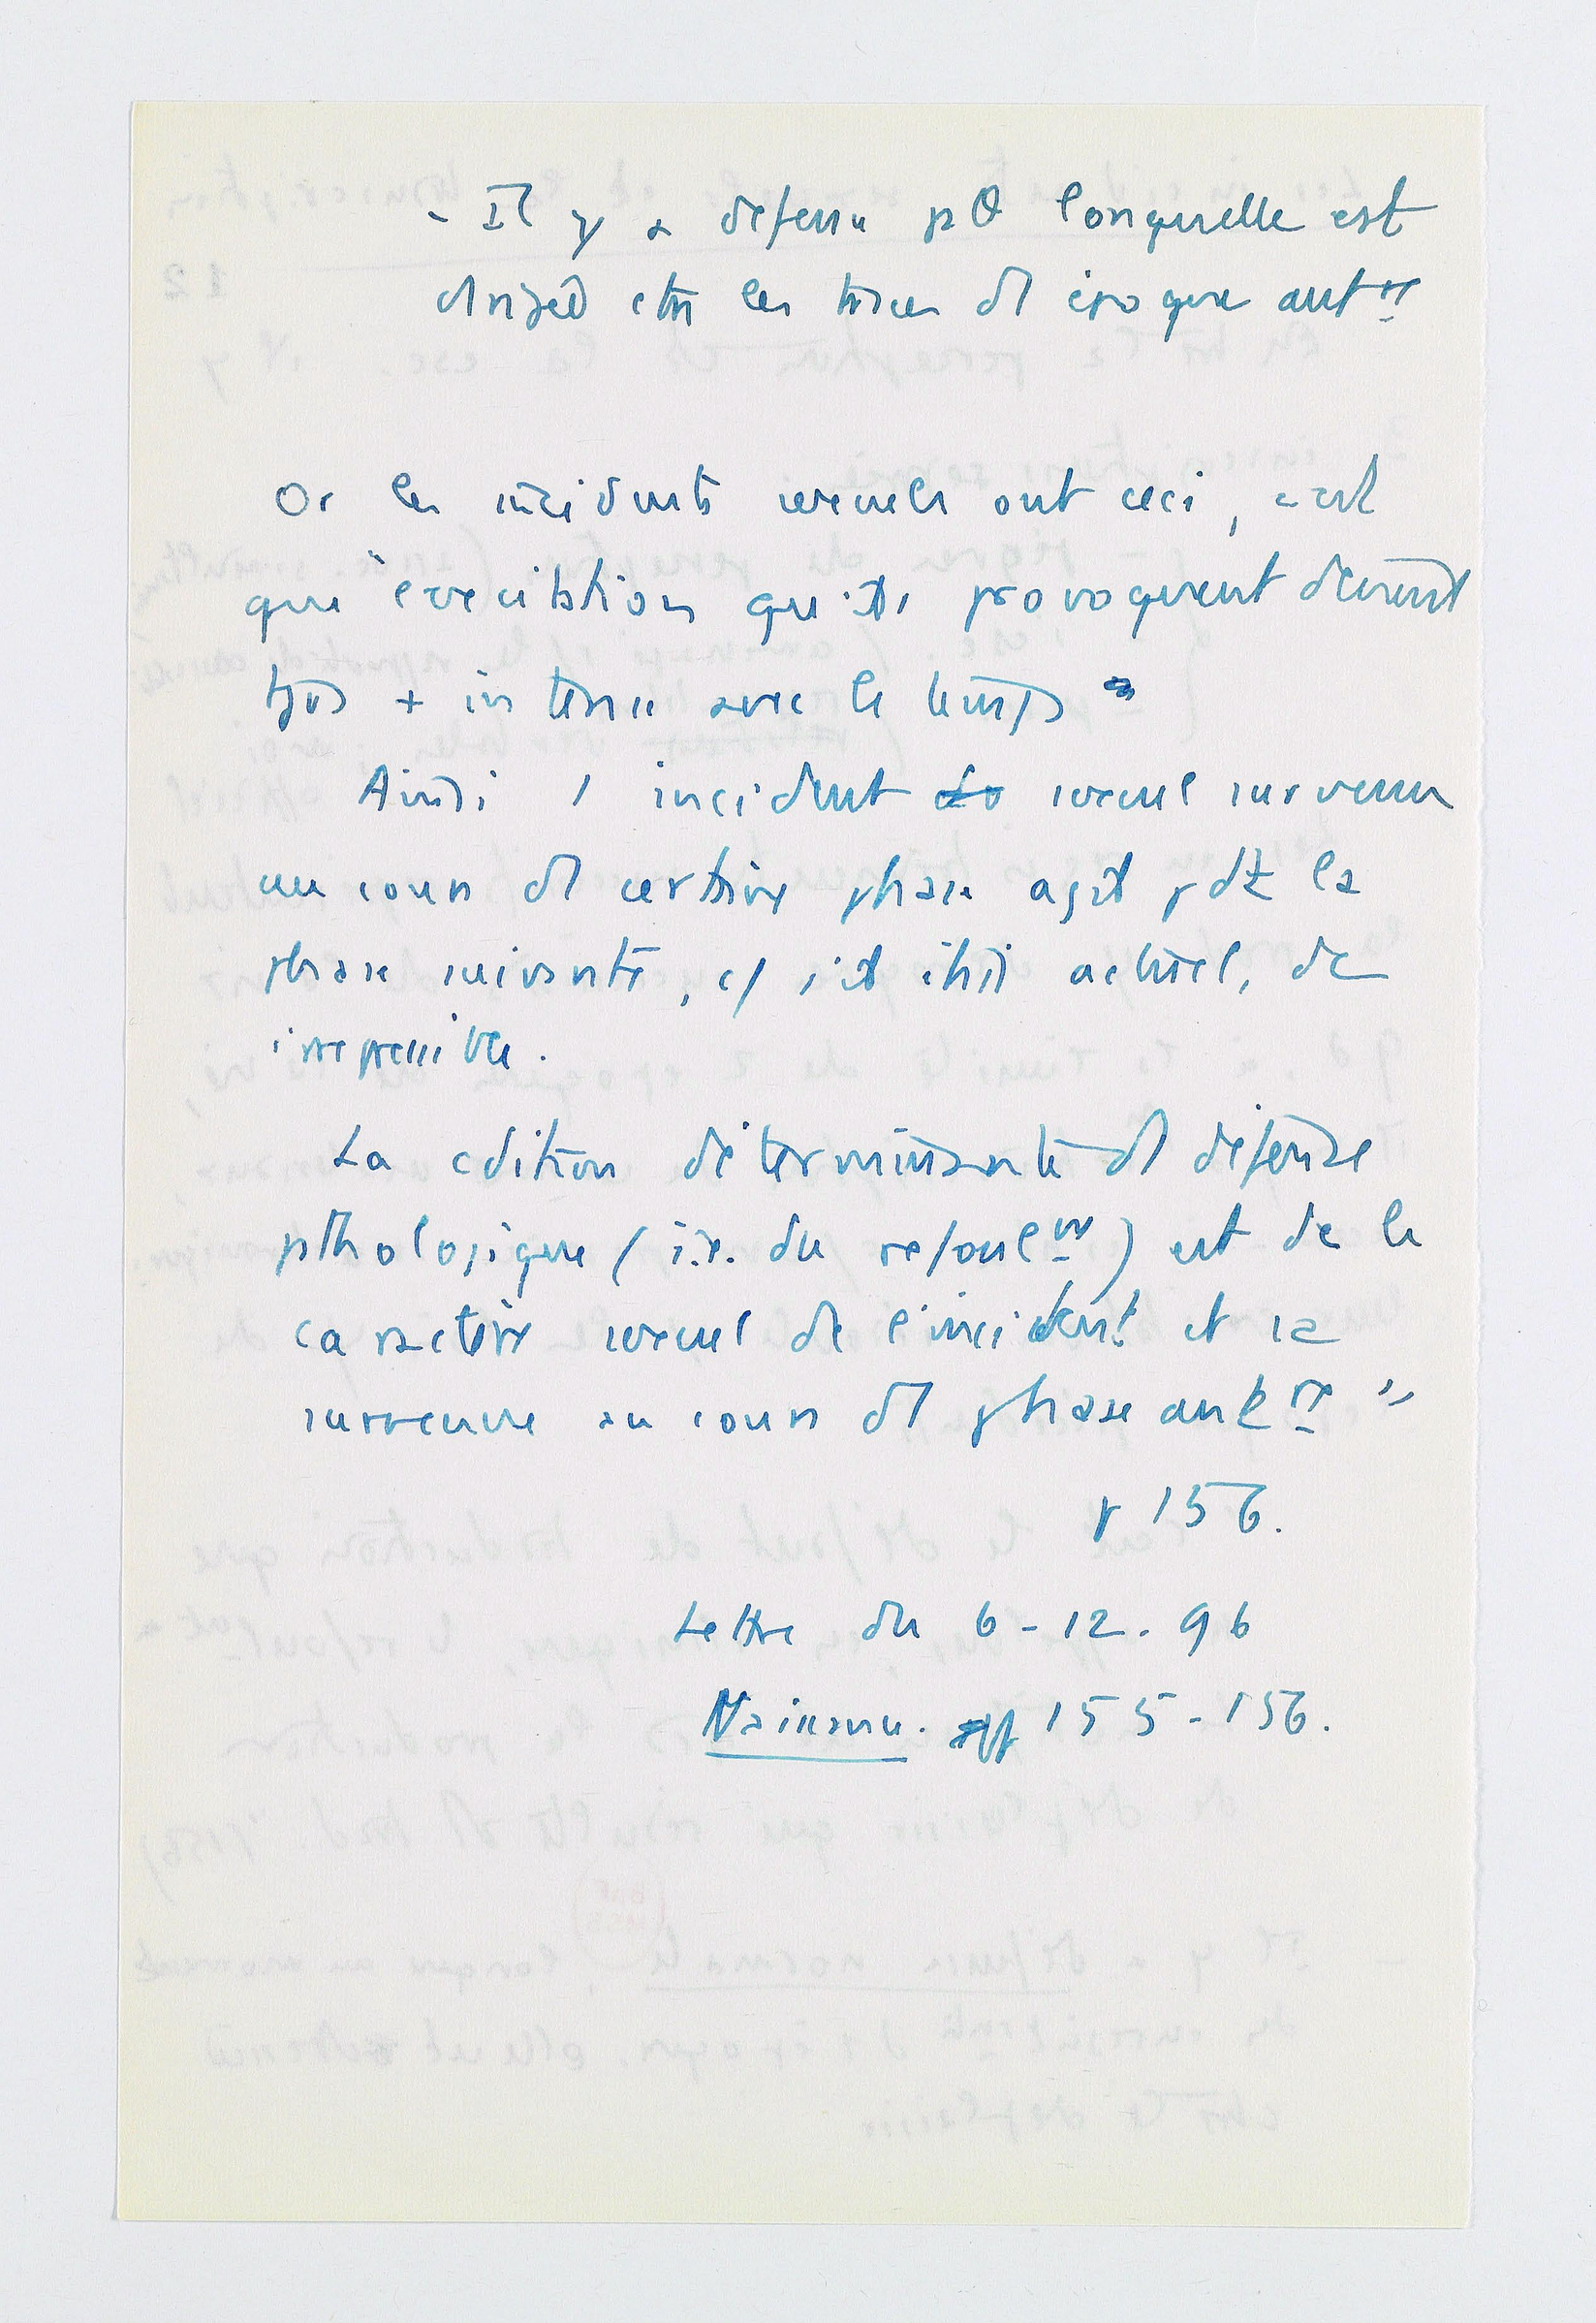 - Il y a defense pθ lorsqu'elle est
dirigée ctre les traces d1 époque antre
Or les incidents sexuels ont ceci, c'est
que l'excitation qu'ils provoquent devient
tjrs + intense avec le temps
Ainsi 1 incident sexuel survenu
au cours d1 certaine phase agit pdt la
phase suivante, c/ s'il était actuel, de
irrepressible.
La cdition déterminante d1 défense
pathologique (i.e. du refoulmt) est de le
caractère sexuel de l'incident et sa
survenue au cours d1 phase antre "
p 156.
Lettre du 6-12.96
Naissance. pp 155-156.